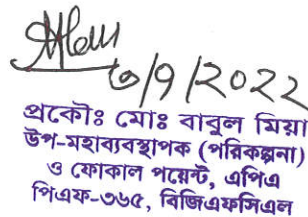 ৩/9/2022
প্রকৌঃ মোঃ বাবুল মিয়া
উপ-মহাব্যবস্থাপক (পরিকল্পনা)
ও ফোকাল পয়েন্ট, এপিএ
পিএফ-৩৬৫, বিজিএফসিএল